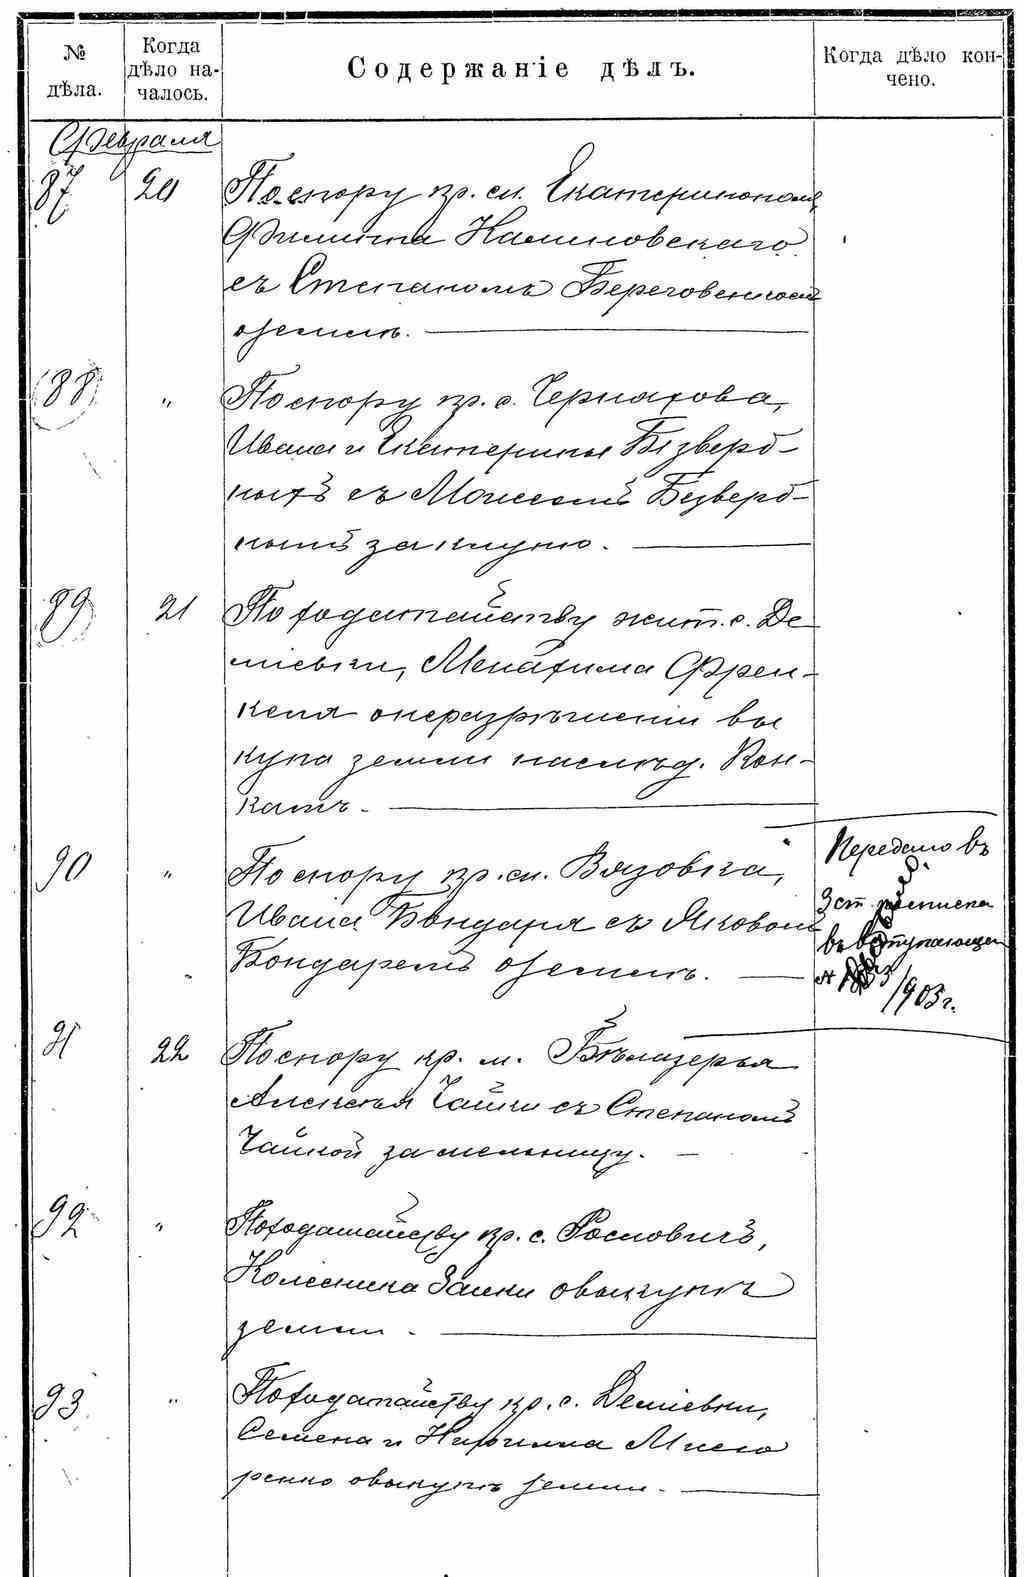 № дѣла.
Когда дѣло на-чалось.
Содержаніе дѣлъ.
Когда дѣло кон-чено.
Февраля
87 20 По спору кр. см. Екатеринополя,
Филиппа Калиновскаго
съ Степаномъ Береговенкомъ
о землѣ.
88 " По спору кр. с. Чернахова,
Ивана и Екатерины Безверб-
ныхъ съ Моисеемъ Безверб-
нымъ за клуню.
89 21 По ходатайству жит. с. Де-
міевки, Менахима Френ-
келя о неразрѣшеніи вы
купа земли наслѣд. Кон-
90 " По спору кр. см. Вязовка,
Ивана Бондаря съ Яковомъ
Бондаремъ о землѣ.
Передано въ
3 ст.
въ
1905 г.
91 22 По спору кр. м. Бѣлозерья
Алексѣя Чайки съ Степаномъ
Чайкой за мельницу.
92 " По ходатайству кр. с. Рословичъ,
Колесника Заики о выкупѣ
земли.
93 " По ходатайству кр. с. Деміевки,
Семена и Кирилла
о выкупѣ земли.